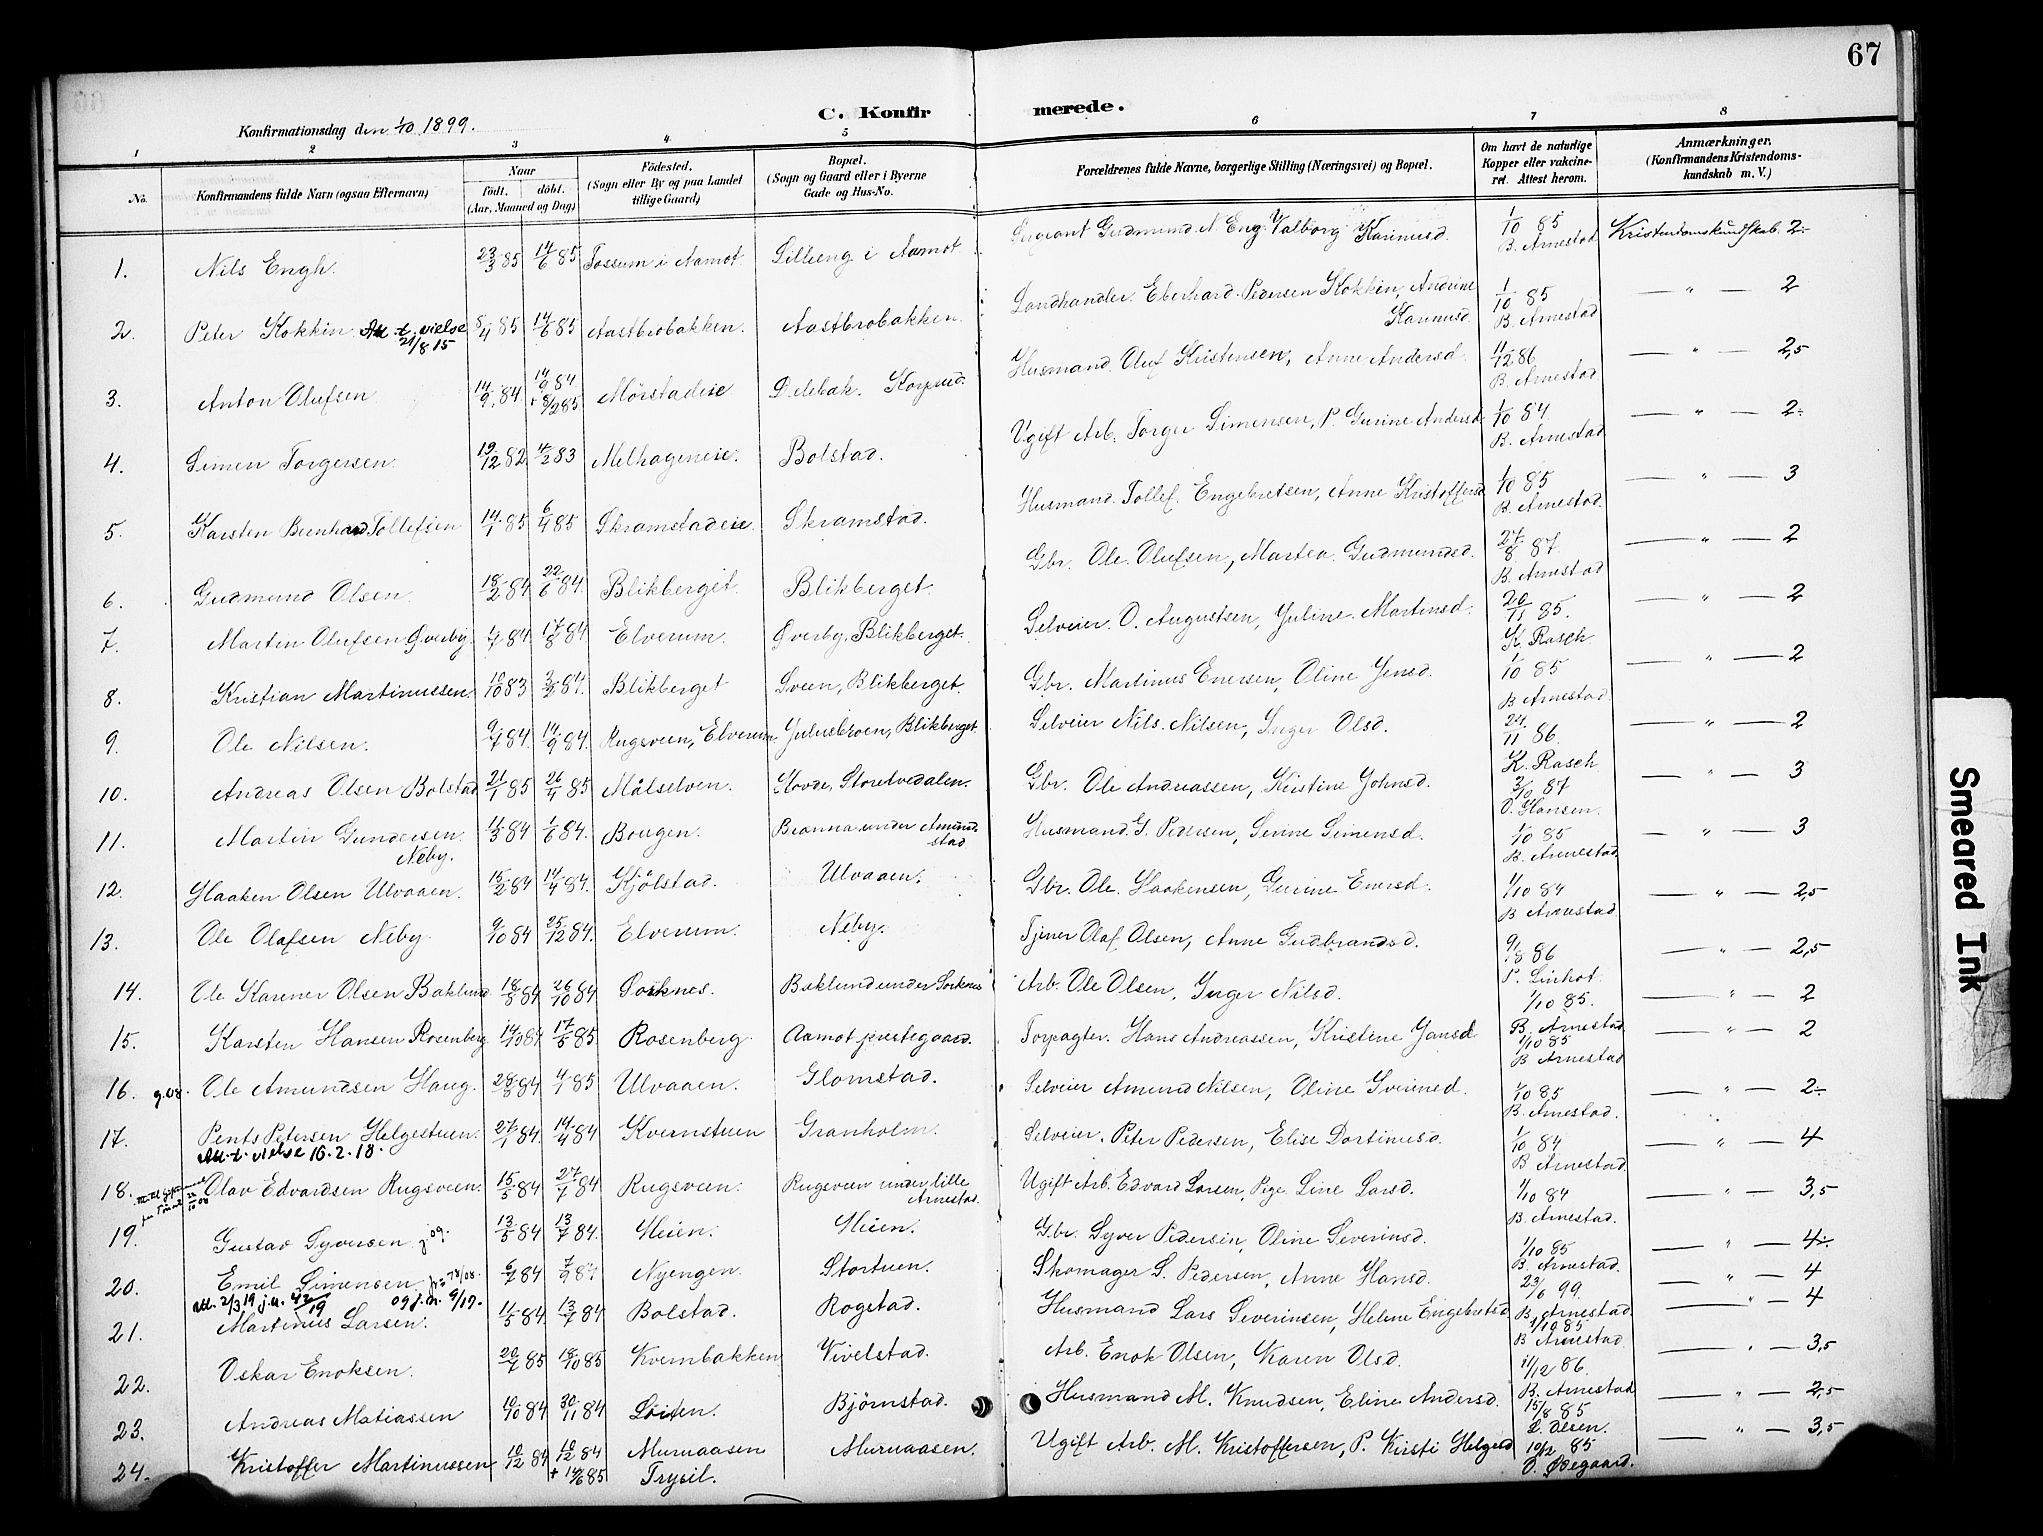 67
C. Konfirmerede.
Konfirmationsdag den 1/10 1899.
1 2 3 4 5 6 7 8
No. Konfirmandens fulde Navn (ogsaa Efternavn) Naar født. døbt. (Aar, Maaned og Dag) Fødested. (Sogn eller By og paa Landet tillige Gaard) Bopæl. (Sogn og Gaard eller i Byerne Gade og Hus-No. Forældrenes fulde Navne, borgerlige Stilling (Næringsvei) og Bopæl. Om havt de naturlige Kopper eller vakcineret. Attest herom. Anmærkninger. (Konfirmandens Kristendomskundskab m. V.)
1. Nils Engh. 23/3 85 14/6 85 Fossum i Aamot. Lilleeng i Aamot Sergeant Gudmund N. Eng. Valborg Karinusd. 1/10 85 B. Arnestad Kristendomskundskab 2-
2. Peter Kokkin Att. t. vielse 21/8 15 8/4 85 14/6 85 Aastbrobakken. Aastbrobakken. Landhandler Eberhard Pedersen Kokkin, Andrine Karinusd. 1/10 85 B. Arnestad — " — 2
3. Anton Olufsen 14/9 84 14/9 84 + 8/2 85 Mörstadeie Delebak. Husmand Oluf Kristensen, Anne Andersd. 11/12 86 B. Arnestad — " — 2,5
4. Simen Torgersen. 19/12 82 4/2 83 Melhageneie. Bolstad. Ugift Arb. Torger Simensen, P. Gurine Andersd. 1/10 84 B. Arnestad — " — 2-
5. Karsten Bernhard Tollefsen 14/1 85 6/4 85 Skramstadeie. Skramstad. Husmand Tollef Engebretsen, Anne Kristoffersd. 1/10 85 B. Arnestad. — " — 3
6. Gudmund Olsen. 18/2 84 22/6 84. Blikberget. Blikberget. Gbr. Ole Olufsen, Martea Gudmundsd. 27/8 87 B. Arnestad — " — 2
7. Martin Olufsen Överby. 84 17/8 84 Elverum. Överby, Blikberget. Selveier O. Augustsen, Juline Martinsd. 26/11 85. K. Rasch — " — 2
8. Kristian Martinussen 10/10 83 84. Blikberget Sveen, Blikberget. Gbr. Martinus Enersen, Oline Jensd. 1/10 85 B. Arnestad — " — 2
9. Ole Nilsen. 9/7 84 14/9 84. Rugsveen, Elverum Juliusbroen, Blikberget Selveier Nils Nilsen, Inger Olsd. 24/11 86. K. Rasch — " — 2
10. Andreas Olsen Bolstad 21/1 85 26/4 85 Målselven. Hovde, Storelvedalen. Gbr. Ole Andreassen, Kristine Johnsd. 3/10 87 O. Hansen. — " — 3
11. Martin Gundersen Neby. 84 1/6 84. Bougen. Brænna under Amundstad Husmand G. Pedersen, Serine Simensd. 1/10 85 B. Arnestad. — " — 3
12. Haaken Olsen Ulvaaen. 15/2 84 14/4 84. Kjölstad. Ulvaaen. Gbr. Ole Haakensen, Gurine Enersd. 1/10 84 B. Arnestad. — " — 2,5
13. Ole Olafsen Neby. 9/10 84 25/12 84. Elverum. Neby. Tjener Olaf Olsen, Anne Gudbrandsd. 86 P. Linhot. — " — 2,5
14. Ole Karener Olsen Baklund 18/8 84 26/10 84 Sorknes. Baklund under Sorknes Arb. Ole Olsen, Inger Nilsd. 1/10 85. B. Arnestad — " — 2
15. Karsten Hansen Rosenberg 14/10 84 17/5 85 Rosenberg. Aamot prestegaard. Forpagter. Hans Andreassen, Kristine Jansd. 1/10 85 B Arnestad — " — 2
16. g. 08. Ole Amundsen Haug. 28/8 84 4/1 85 Ulvaaen. Glomstad. Selveier Amund Nilsen, Oline Sveinsd. 1/10 85 B. Arnestad. — " — 2-
17. Pents Petersen Helgestuen. Att. t. vielse 16.2.18. 27/1 84. 14/4 84 Kvernstuen Granholm. Selveier. Peter Pedersen, Elise Dortinusd. 1/10 84 B Arnestad. — " — 4
18. Olav Edvardsen Rugsveen. 15/5 84 27/7 84 Rugsveen. Rugsveen under lille Arnestad. Ugift Arb. Edvard Larsen, Pige Line Larsd. 1/10 84 B. Arnestad. — " — 3,5
19. Gustav Syversen. g 09. 13/5 84 13/7 84. Heien. Heien. Gbr. Syver Pedersen, Oline Severinsd. 1/10 85 B. Arnestad. — " — 4-
20. Emil Simensen Att. 2/3 19 6/7 84 7/9 84 Nyengen. Stortuen. Skomager S. Pedersen, Anne Hansd. 23/6 99. B. Arnestad — " — 4
21. Martinus Larsen. 11/5 84 13/7 84 Bolstad. Rogstad. Husmand Lars Severinsen, Helene Engebretsd. 1/10 85 B Arnestad — " — 4
22. Oskar Enoksen. 20/7 85 18/10 85 Kvernbakken Kivelstad. Arb. Enok Olsen, Karen Olsd. 11/12 86. B. Arnestad — " — 3,5
23. Andreas Matiassen 10/10 84 30/11 84 Löiten. Björnstad. Husmand M. Knudsen, Eline Andersd. 15/8 85 L. Olsen. — " — 2,5
24. Kristoffer Martinussen 10/12 84 10/12 84 + 85 Muruaasen Trysil. Muruaasen. Ugift Arb. M. Kristoffersen, P. Kirsti Helgesd 10/12 85 O. Ødegaard. — " — 3,5
Smeared Ink